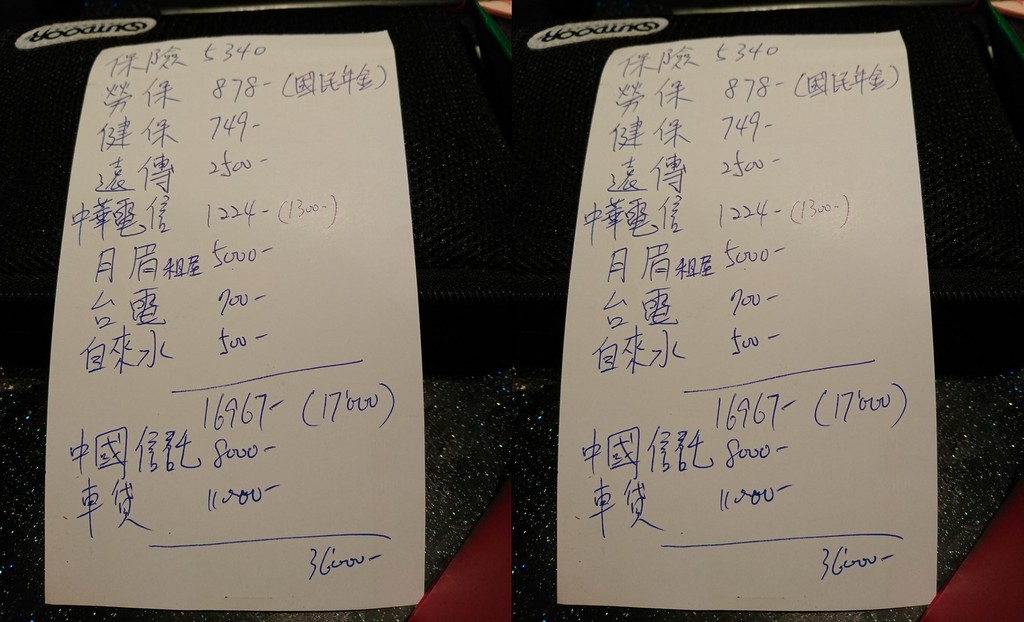 OUTDOOR
保險 5340
勞保 878-(國民年金)
健保 749-
遠傳 2500-
中華電信 1224-(1300-)
月眉租屋 5000-
台電 700-
自來水 500-
16967-(17'000)
中國信託 8000-
車貸 11000-
36000-
OUTDOOR
保險 5340
勞保 878-(國民年金)
健保 749-
遠傳 2500-
中華電信 1224-(1300-)
月眉租屋 5000-
台電 700-
自來水 500-
16967-(17'000)
中國信託 8000-
車貸 11000-
36000-